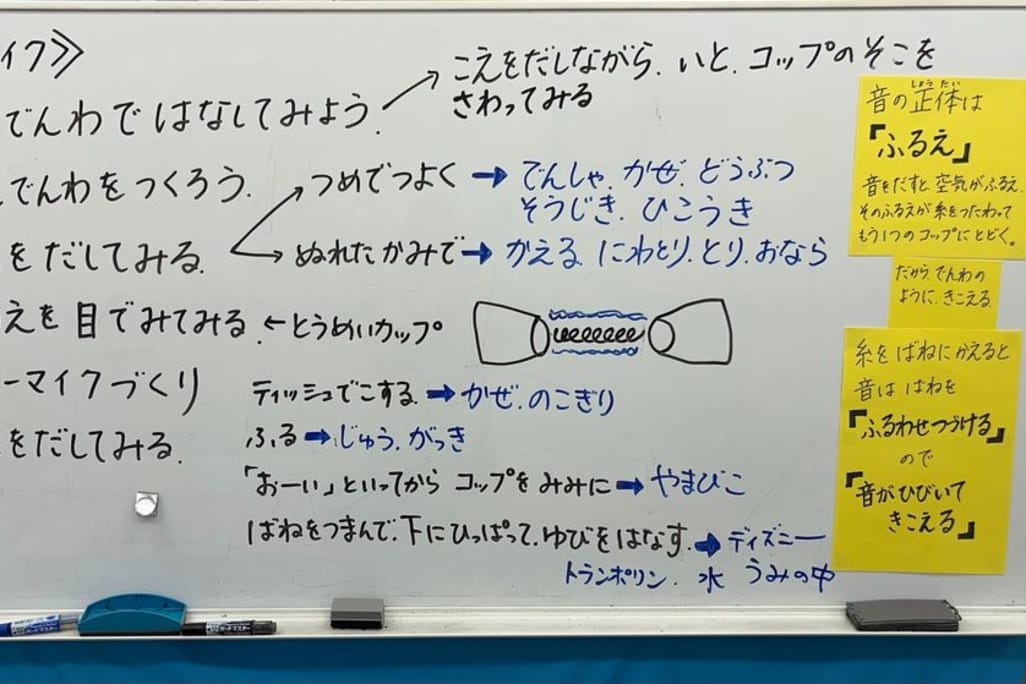 イク≫
でんわではなしてみよう.
こえをだしながら.いと.コップのそこを
さわってみる
でんわをつくろう.
つめでつよく→でんしゃ.かぜ.どうぶつ
そうじき.ひこうき
をだしてみる.
ぬれたかみで→かえる.にわとり.とり.おなら
えを目でみてみる.←とうめいカップ
ーマイクづくり
ティッシュでこする.→かぜ.のこぎり
をだしてみる.
ふる→じゅう.がっき
「おーい」といってからコップをみみに→やまびこ
ばねをつまんで.下にひっぱって.ゆびをはなす.→ディズニー
トランポリン.水 うみの中
音の正体は
しょうたい
『ふるえ』
音をだすと空気がふるえ.
そのふるえが糸をつたわって
もう1つのコップにとどく。
だから.でんわの
ように.きこえる.
糸をばねにかえると
音ははねを
『ふるわせつづける』
ので
『音がひびいて
きこえる』
ボードマスター